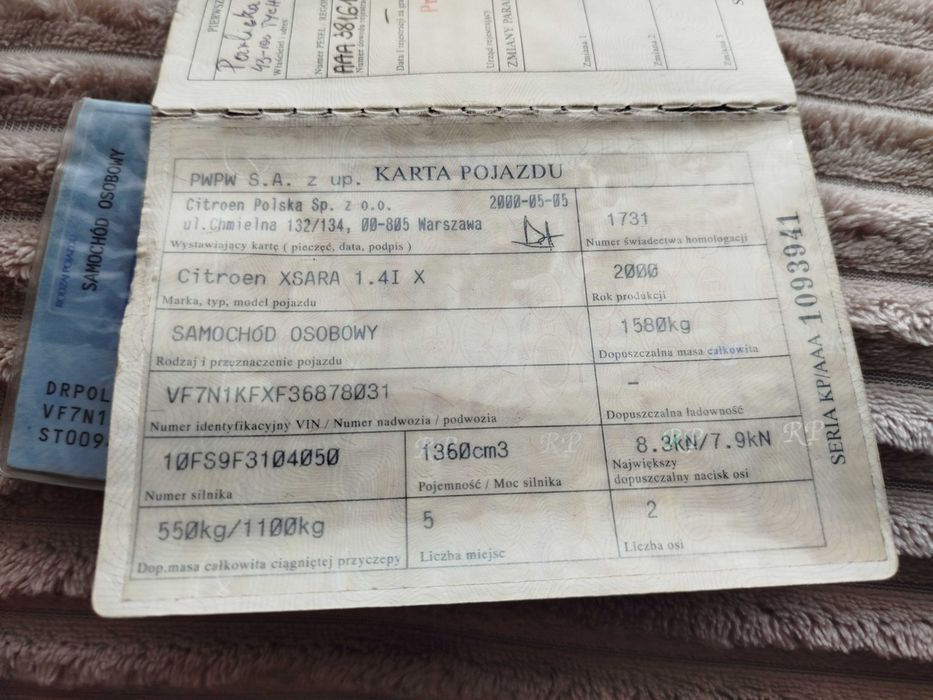 43-100 TYCH
Właściciel i adres
Numer PESEL REGO
AAA 3816
Numer dowodu rejestra
Data i rejestracji za gra
Urząd rejestrujący
ZMIANY PARA
Zmiana 1
Zmiana 2
Zmiana 3
RODZAJ POJAZDU
SAMOCHÓD OSOBOWY
DRPOL
VF7N1
ST009
PWPW S.A. z up. KARTA POJAZDU
Citroen Polska Sp. z o.o. 2000-05-05
ul.Chmielna 132/134, 00-805 Warszawa
Wystawiający kartę ( pieczęć, data, podpis )
1731
Numer świadectwa homologacji
Citroen XSARA 1.4I X
Marka, typ, model pojazdu
2000
Rok produkcji
SAMOCHÓD OSOBOWY
Rodzaj i przeznaczenie pojazdu
1580kg
Dopuszczalna masa całkowita
VF7N1KFXF36878031
Numer identyfikacyjny VIN / Numer nadwozia / podwozia
-
Dopuszczalna ładowność
10FS9F3104050
Numer silnika
1360cm3
Pojemność / Moc silnika
8.3kN/7.9kN
Największy
dopuszczalny nacisk osi
550kg/1100kg
Dop.masa całkowita ciągniętej przyczepy
5
Liczba miejsc
2
Liczba osi
RP RP RP
SERIA KP/AAA 1093941